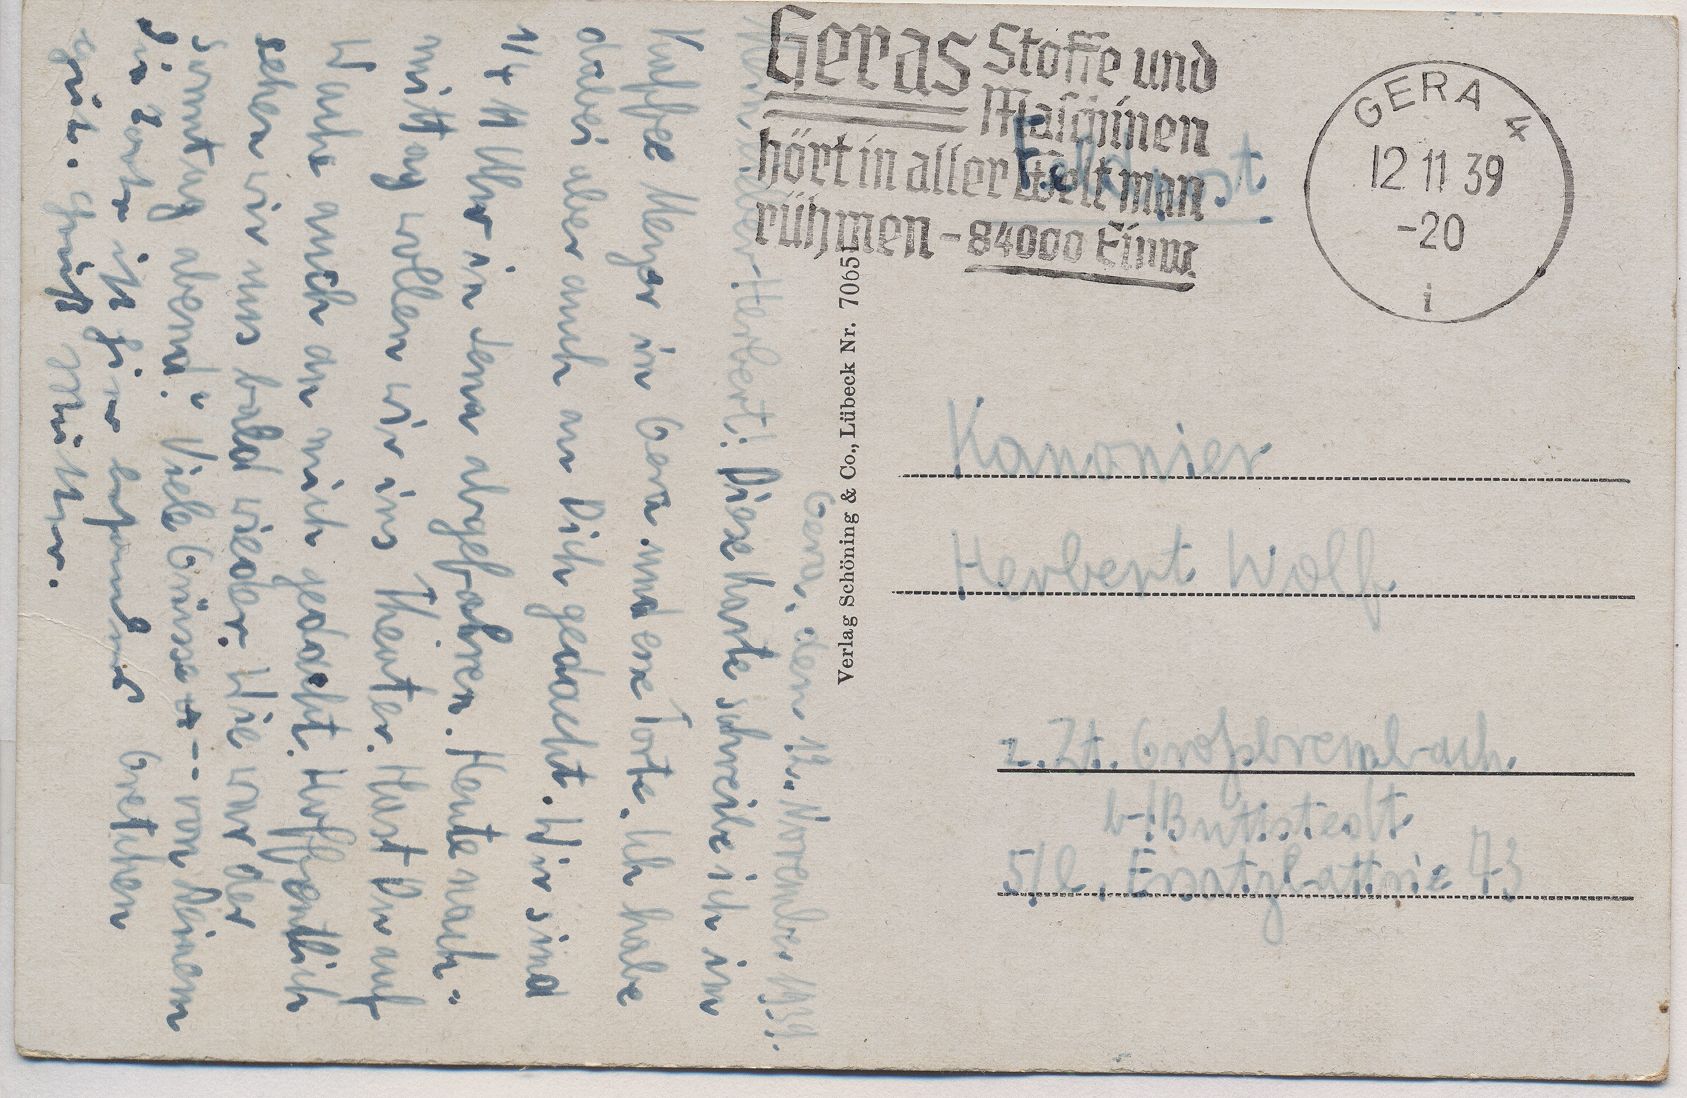 Geras Stoffe und
Maschinen
hört in aller Welt man
rühmen - 84000 Einw.
GERA 4
12 11 39
-20
i
Feldpost
Kanonier
Herbert Wolf
z. Zt. Großbrembach
b/Buttstedt
5/l. Ersatzbattrie 73
Verlag Schöning & Co., Lübeck Nr. 7065
Gera, den 12. November 1939.
Mein lieber Herbert! Diese Karte schreibe ich im
Kaffee Meyer in Gera und esse Torte. Ich habe
dabei aber auch an Dich gedacht. Wir sind
1/4 11 Uhr in Jena abgefahren. Heute nach-
mittag wollen wir ins Theater. Hast Du auf
Wache auch an mich gedacht. Hoffentlich
sehen wir uns bald wieder. Wie war der
Sonntag abend? Viele Grüsse + -- von Deinem
Gretchen
Die Torte ist hier
Gruß Mutter.